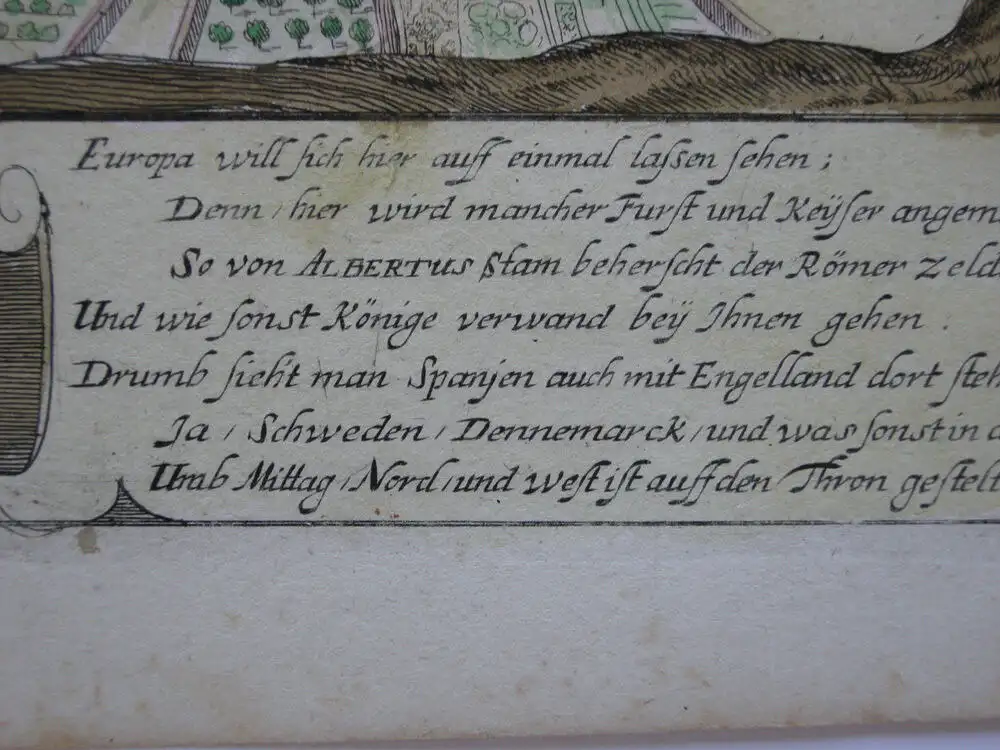 Europa will ſich hier auff einmal laſsen ſehen ;
Denn / hier wird mancher Furſt und Keÿſer angem
So von ALBERTUS Stam beherſcht der Römer Zeld
Und wie ſonst Könige verwand beÿ Ihnen gehen .
Drumb ſieht man Spanjen auch mit Engelland dort ſteh
Ja / Schweden / Dennemarck / und was ſonst in d
Umb Mittag / Nord / und weſt iſt auff den Thron geſtelt